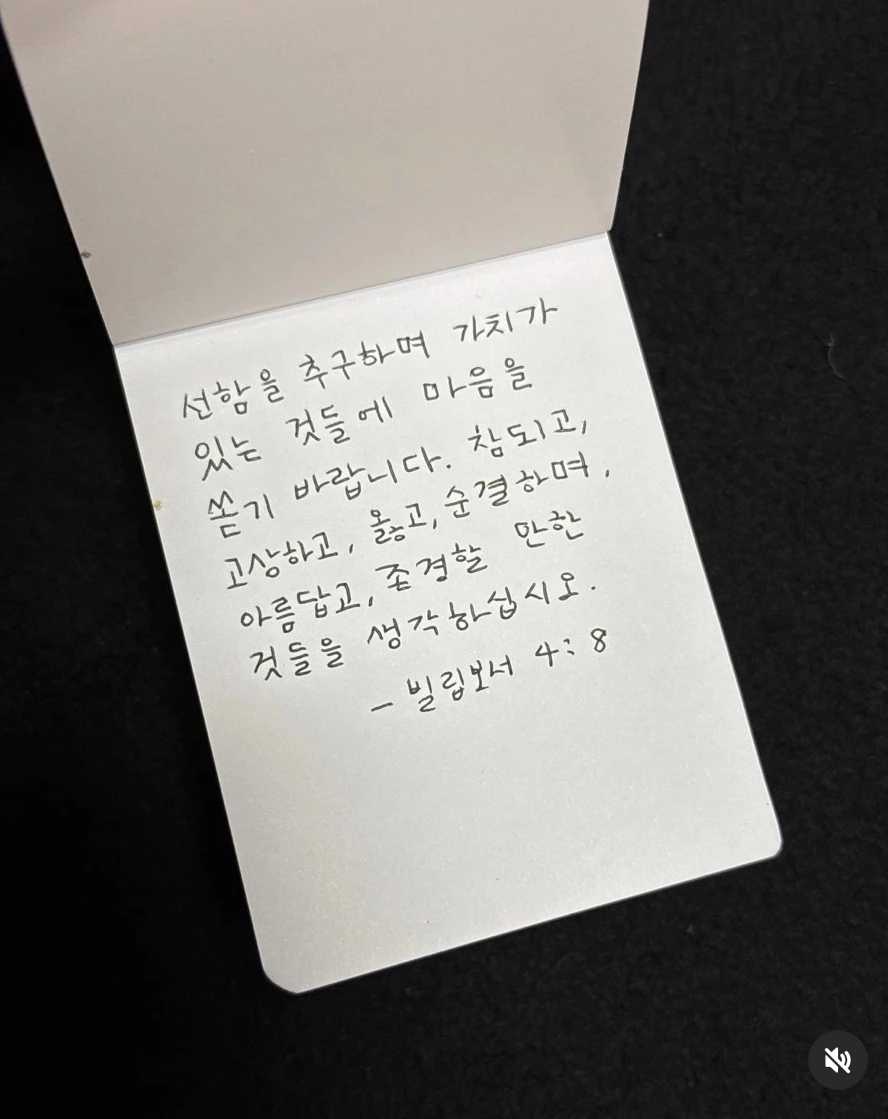 선함을 추구하며 가치가
있는 것들에 마음을
쏟기 바랍니다. 참되고,
고상하고, 옳고, 순결하며,
아름답고, 존경할 만한
것들을 생각하십시오.
- 빌립보서 4:8